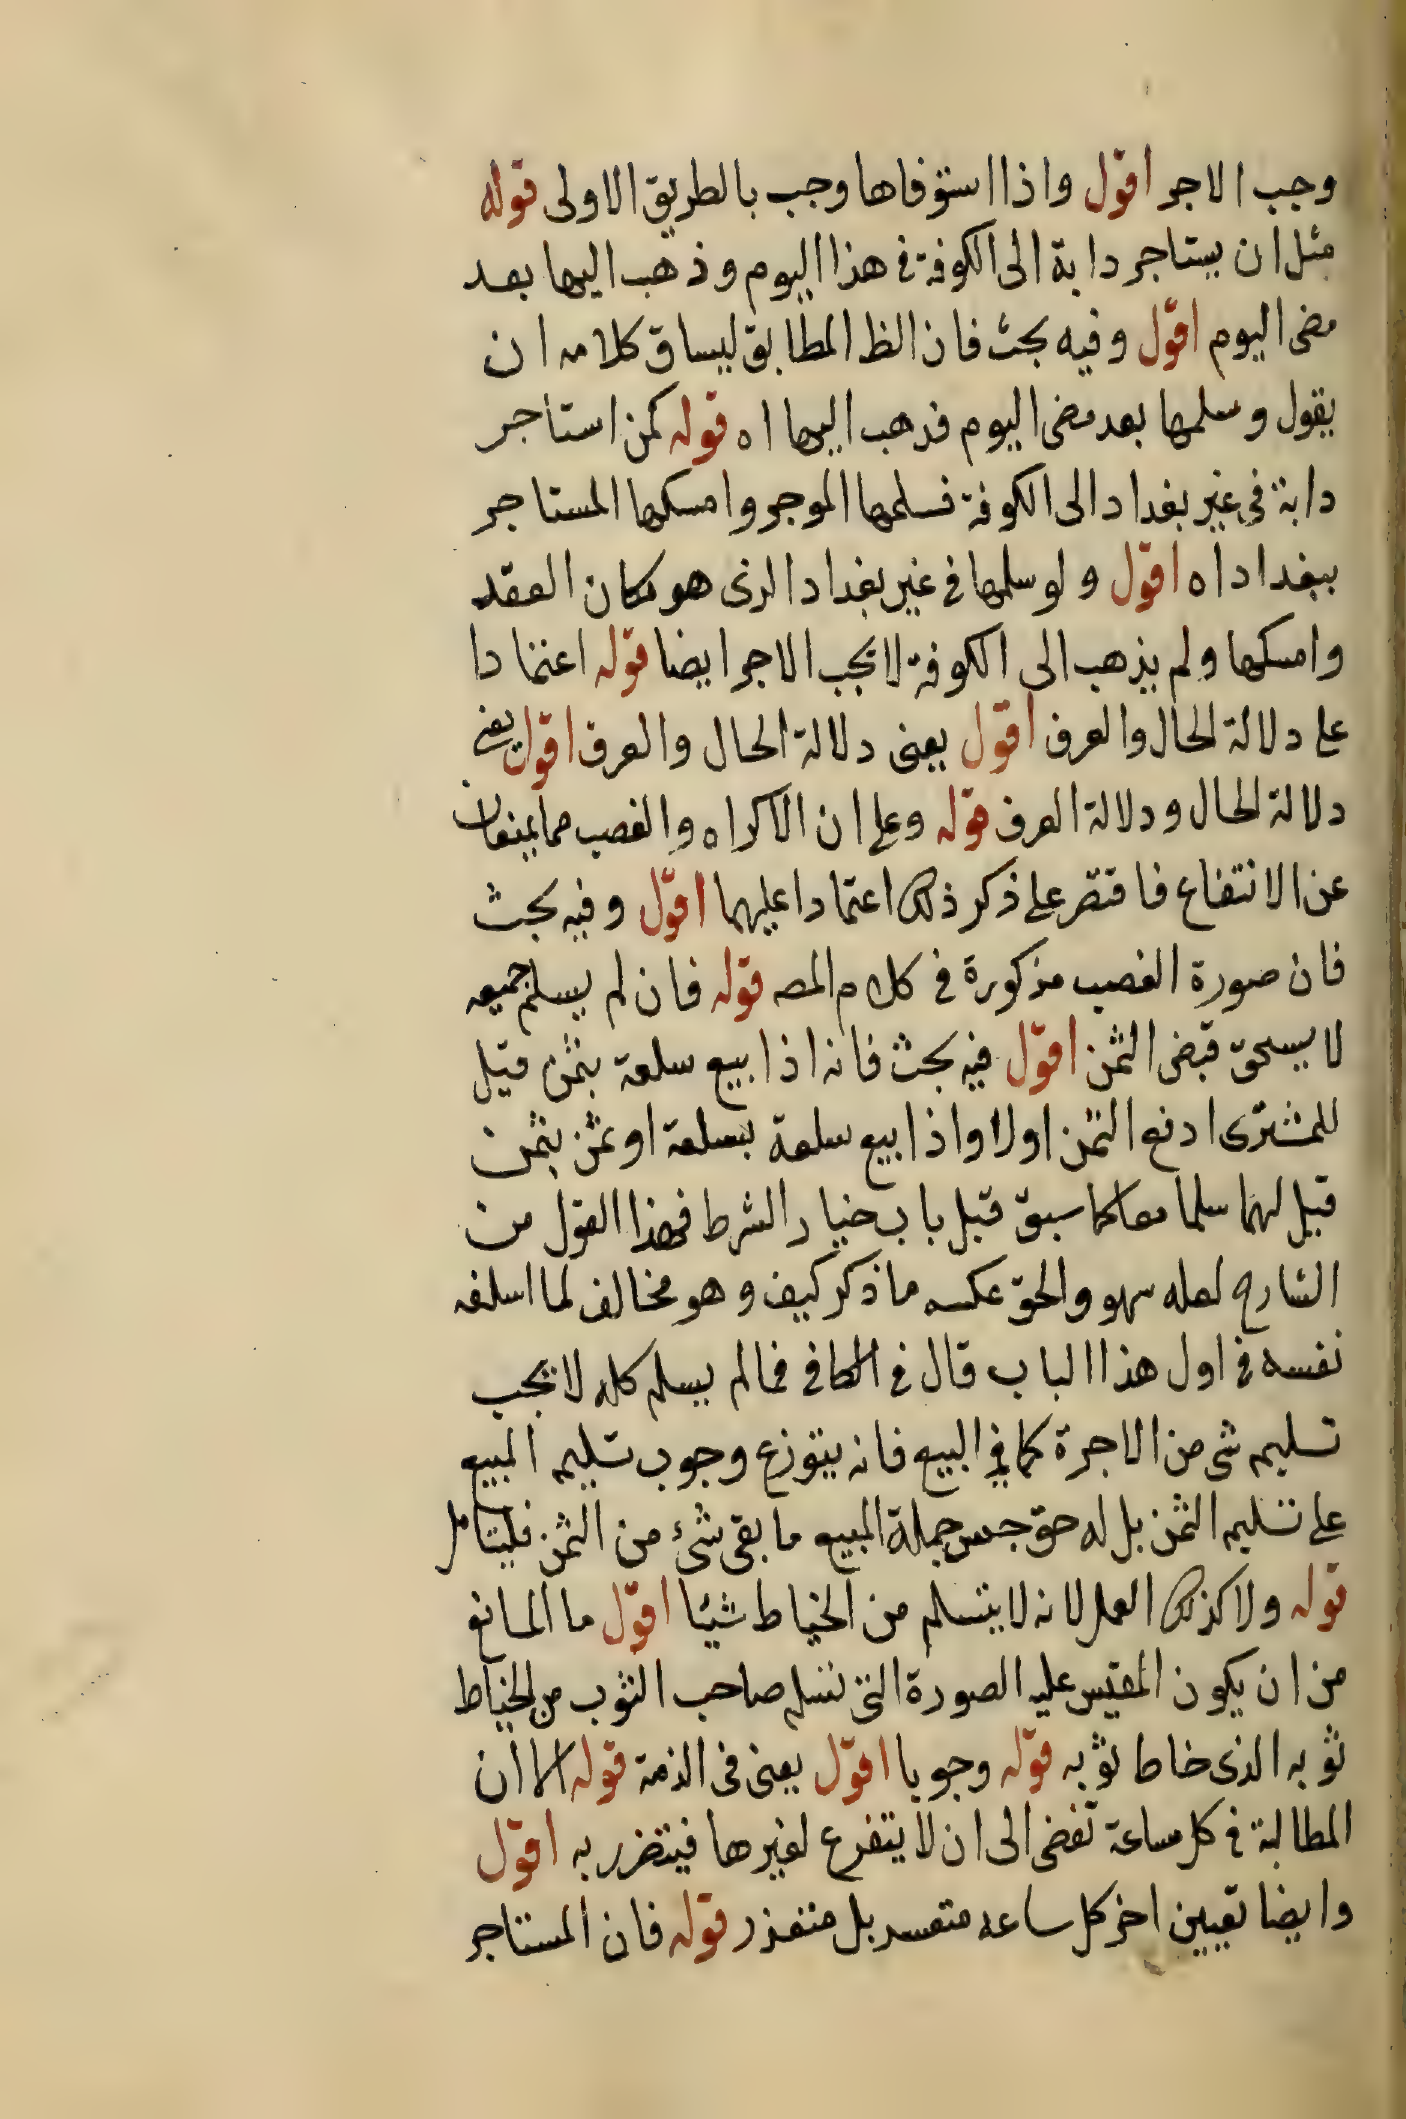 وجب الاجر اقول واذا استوفاها وجب بالطريق الاولى قوله
مثل ان يستاجر دابة الى الكوفة فى هذا اليوم وذهب اليها بعد
مضى اليوم اقول وفيه بحث فان الظ المطابق ليساق كلامه ان
يقول وسلمها بعد مضى اليوم فذهب اليها اه قوله كمن استاجر
دابة فى غير بغداد الى الكوفة فسلمها الموجر وامسكها المستاجر
ببغداد اه اقول ولو سلمها فى غير بغداد الذى هو مكان العقد
وامسكها ولم يذهب الى الكوفة لا يجب الاجر ايضا قوله اعتمادا
على دلالة الحال والعرف اقول يعنى دلالة الحال والعرف اقول يعنى
دلالة الحال ودلالة العرف قوله وعلى ان الاكراه والغصب مما يمنعان
عن الانتفاع فاقتصر على ذكر ذلك اعتمادا عليهما اقول وفيه بحث
فان صورة الغصب مذكورة فى كلام المصه قوله فان لم يسلم جميعه
لا يستحق قبض الثمن اقول فيه بحث فانه اذا بيع سلعة بثمن قيل
للمشترى ادفع الثمن اولا واذا بيع سلعة بسلعة او ثمن بثمن
قيل لهما سلما معا كما سبق قبل باب خيار الشرط فهذا القول من
الشارح لعله سهو والحق عكسه ما ذكر كيف وهو مخالف لما اسلفه
نفسه فى اول هذا الباب قال فى الكافى فما لم يسلم كله لا يجب
تسليم شى من الاجرة كما فى البيع فانه يتوزع وجوب تسليم المبيع
على تسليم الثمن بل له حق حبس جملة المبيع ما بقى شئ من الثمن فليتامل
قوله ولا كذلك العمل لانه لا يتسلم من الخياط شيئا اقول ما المانع
من ان يكون المقيس عليه الصورة التى تسلم صاحب الثوب من الخياط
ثوبه الذى خاط ثوبه قوله وجوبا اقول يعنى فى الذمة قوله الا ان
المطالبة فى كل ساعة تفضى الى ان لا يتفرع لغيرها فيتضرر به اقول
وايضا تعيين اخر كل ساعه متعسر بل متعذر قوله فان المستاجر